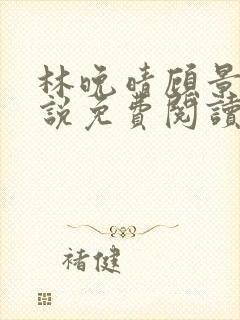 林晚晴顾景
説免費閱讀
褚健